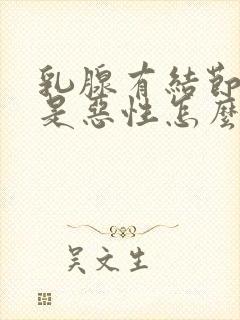 乳腺有結節
是惡性怎麼
吴文生